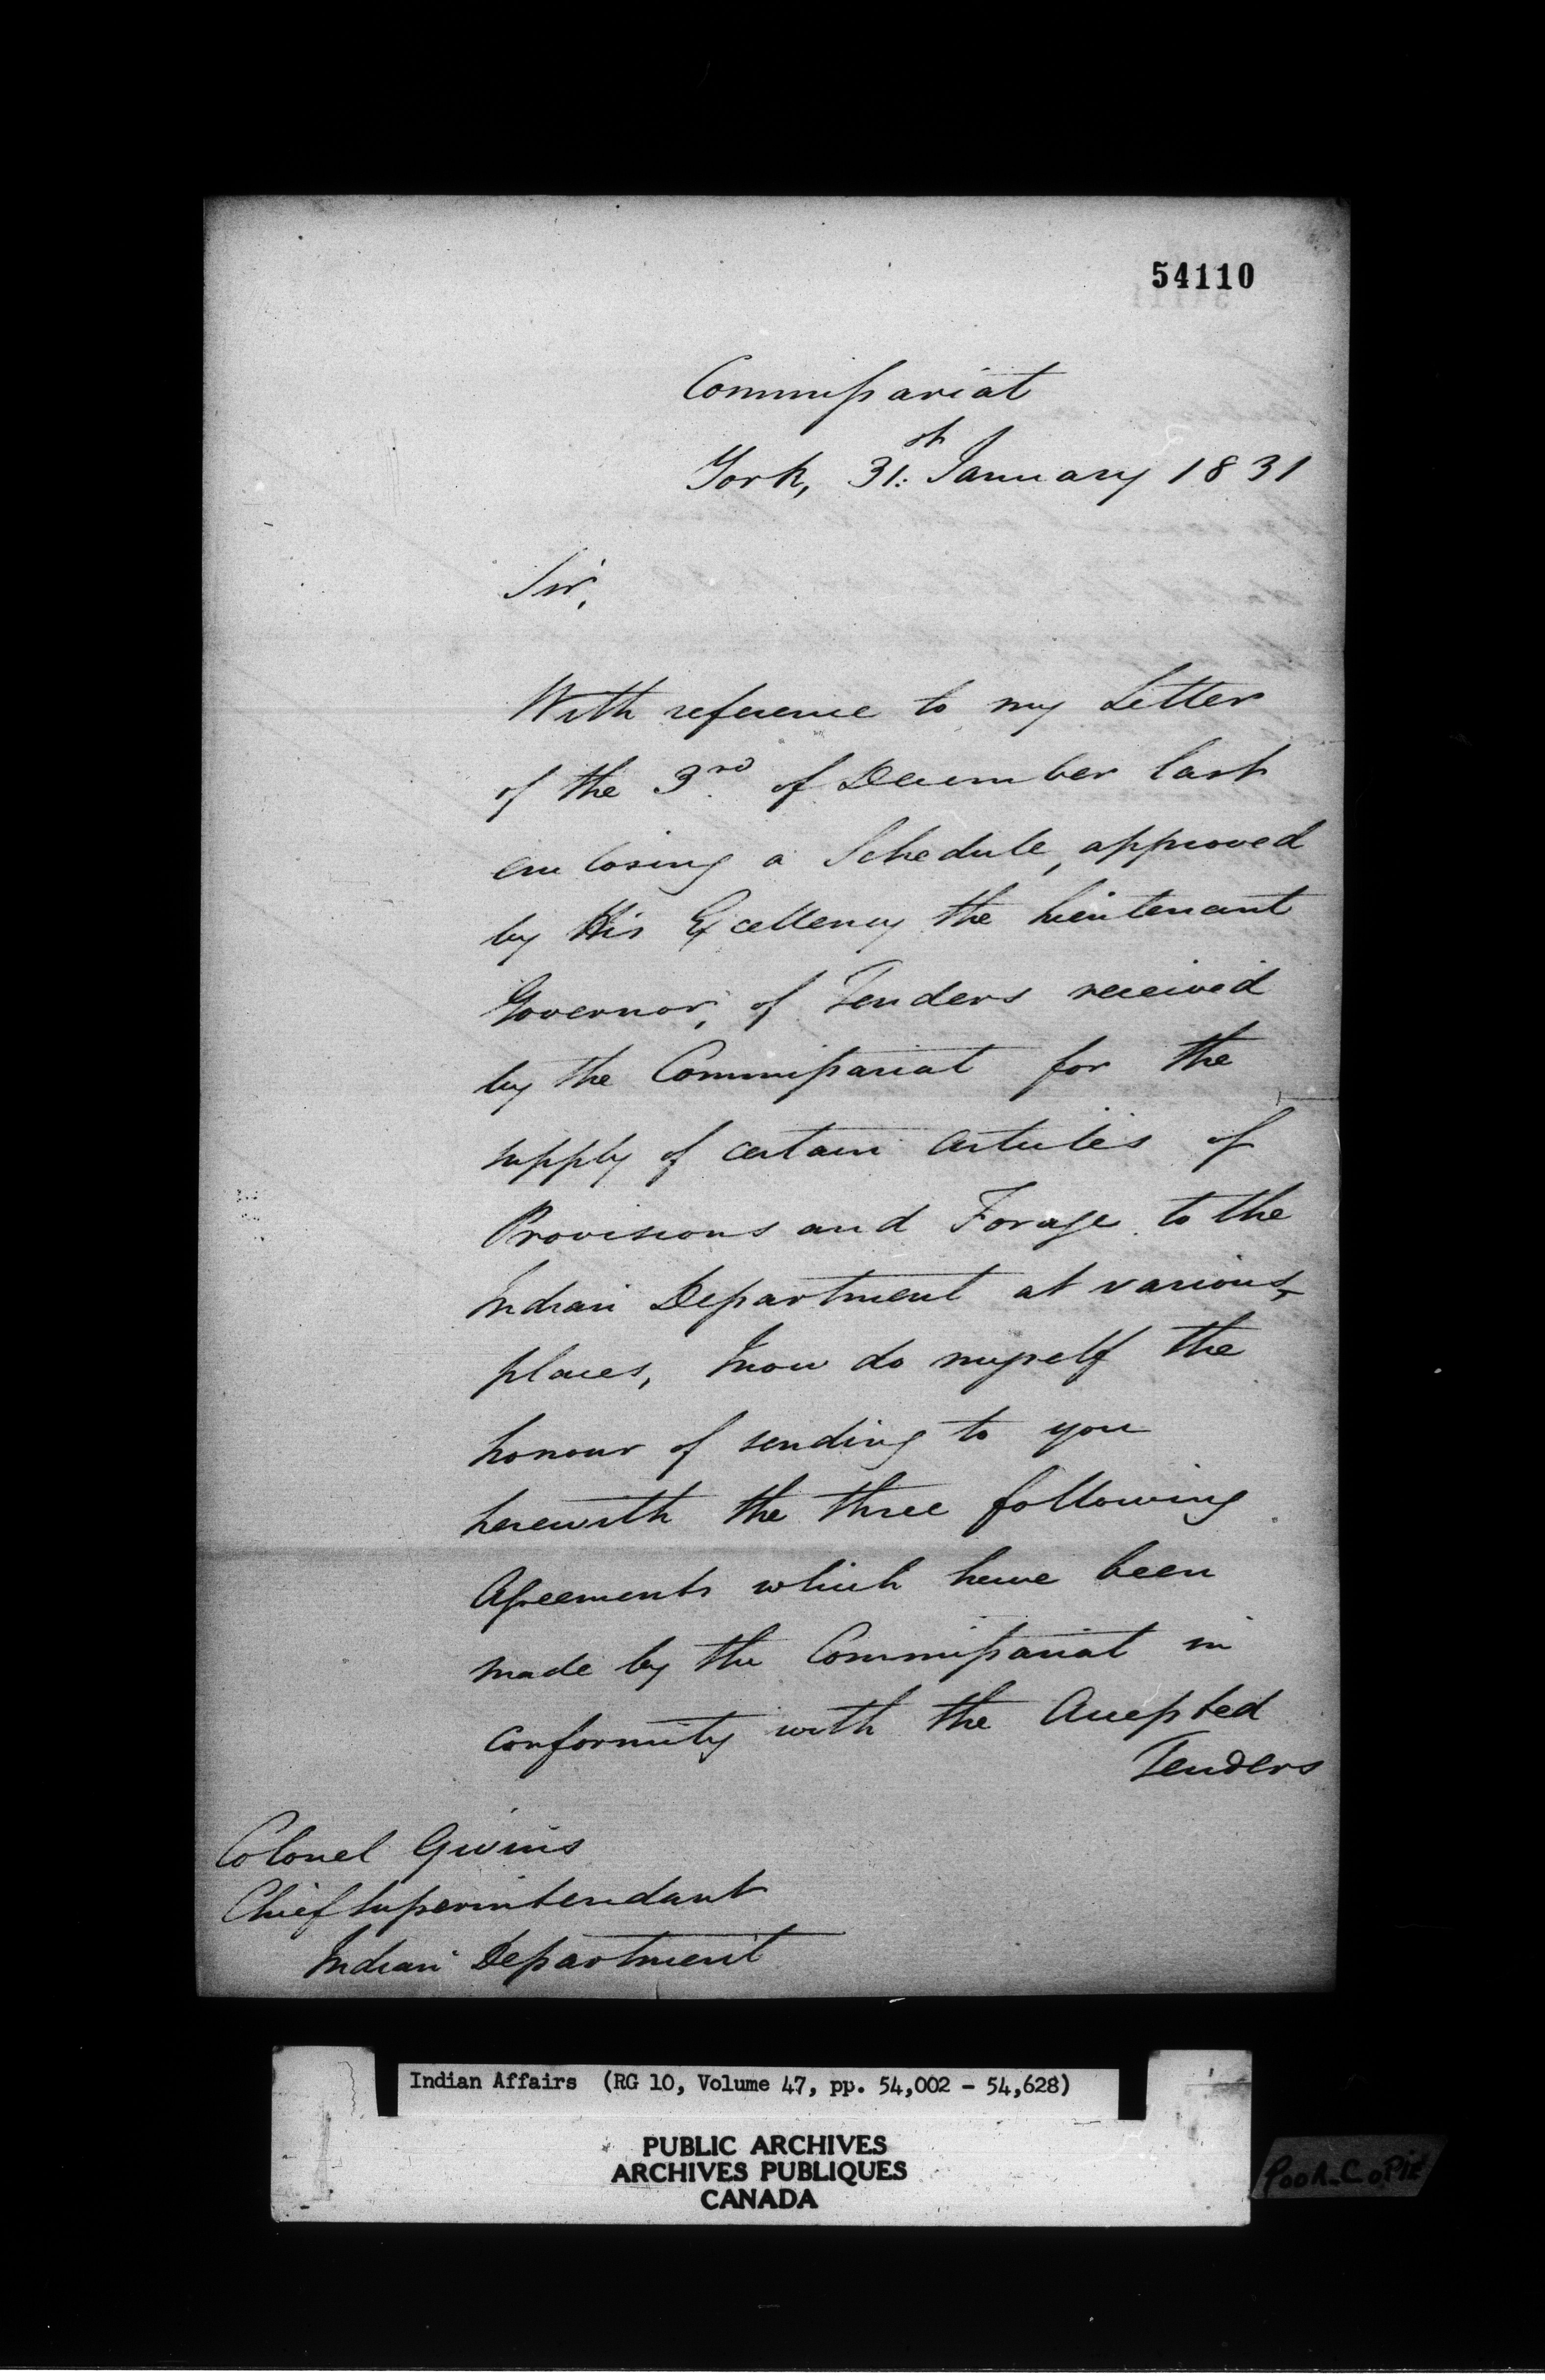 54110
Commissariat
York, 31st January 1831
Sir,
With reference to my Letter
of the 3rd of December last
enclosing a Schedule, approved
by His Excellency the Lieutenant
Governor, of Tenders received
by the Commissariat for the
supply of certain Articles of
Provisions and Forage to the
Indian Department at various
places, I now do myself the
honour of sending to you
herewith the three following
Agreements which have been
made by the Commissariat in
conformity with the Accepted
Tenders
Colonel Givins
Chief Superintendant
Indian Department
Indian Affairs (RG 10, Volume 47, pp. 54,002 - 54,628)
PUBLIC ARCHIVES
ARCHIVES PUBLIQUES
CANADA
POOR-COPIE